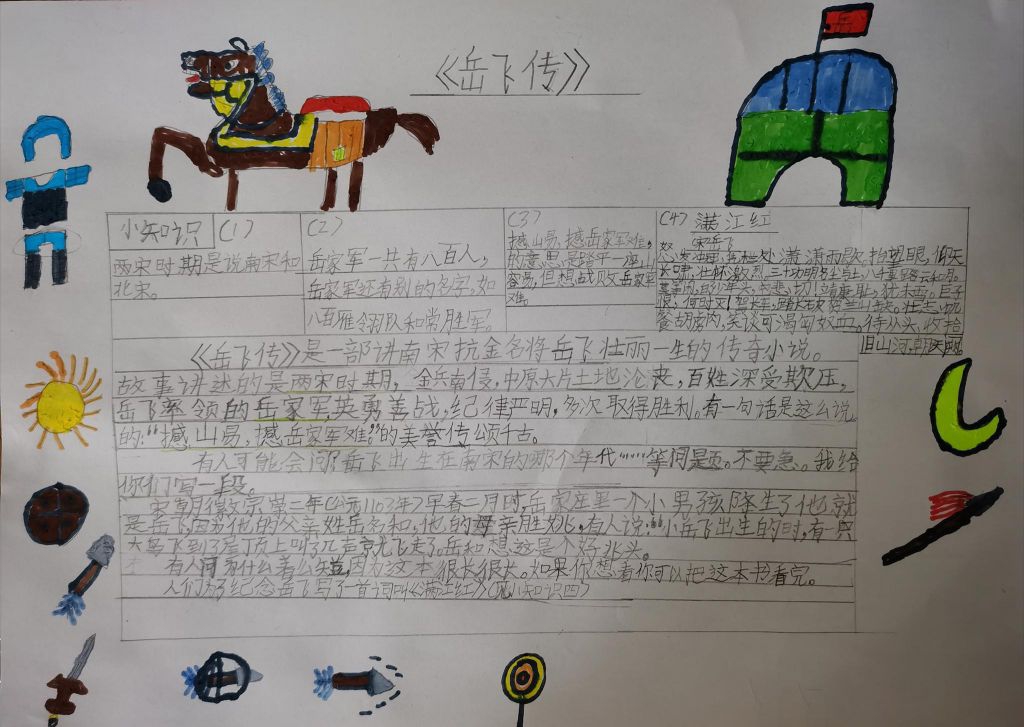 《岳飞传》
岳
小知识
(1)
两宋时期是说南宋和
北宋。
(2)
岳家军一共有八百人，
岳家军还有别的名字，如
八百雅领队和常胜军。
(3)
撼山易，撼岳家军难，
的意思是踏平一座山
容易，但想战败岳家军
难。
(4) 满江红
宋岳飞
怒 处潇潇雨歇 抬望眼，仰天
长啸，壮怀激烈 三十功名尘土，八千里路云和月。
莫等闲，白少年头，空悲切！靖康耻，犹未雪。臣子
恨，何时灭！驾长车，踏破贺兰山缺。壮志饥
餐胡虏肉，笑谈可渴匈奴血。待从头，收拾
旧山河朝天阙。
《岳飞传》是一部讲南宋抗金名将岳飞壮丽一生的传奇小说。
故事讲述的是两宋时期，金兵南侵，中原大片土地沦丧，百姓深受欺压，
岳飞率领的岳家军英勇善战，纪律严明，多次取得胜利。有一句话是这么说
的：“撼山易，撼岳家军难”的美誉传颂千古。
有人可能会问岳飞出生在南宋的哪个年代……等问题。不要急。我给
你们写一段。
宋朝徽宗崇三年（公元1103年）早春二月时，岳家庄里一个小男孩降生了他就
是岳飞，因为他的父亲姓岳名和，他的母亲姓姚，有人说：“小岳飞出生的时，有一只
大鸟飞到了屋顶上叫了几声就飞走了。岳和想这是个好兆头。
有人问为什么着么短，因为这本很长很长。如果你想看你可以把这本书看完。
人们为纪念岳飞写了一首词叫《满江红》（见小知识四）